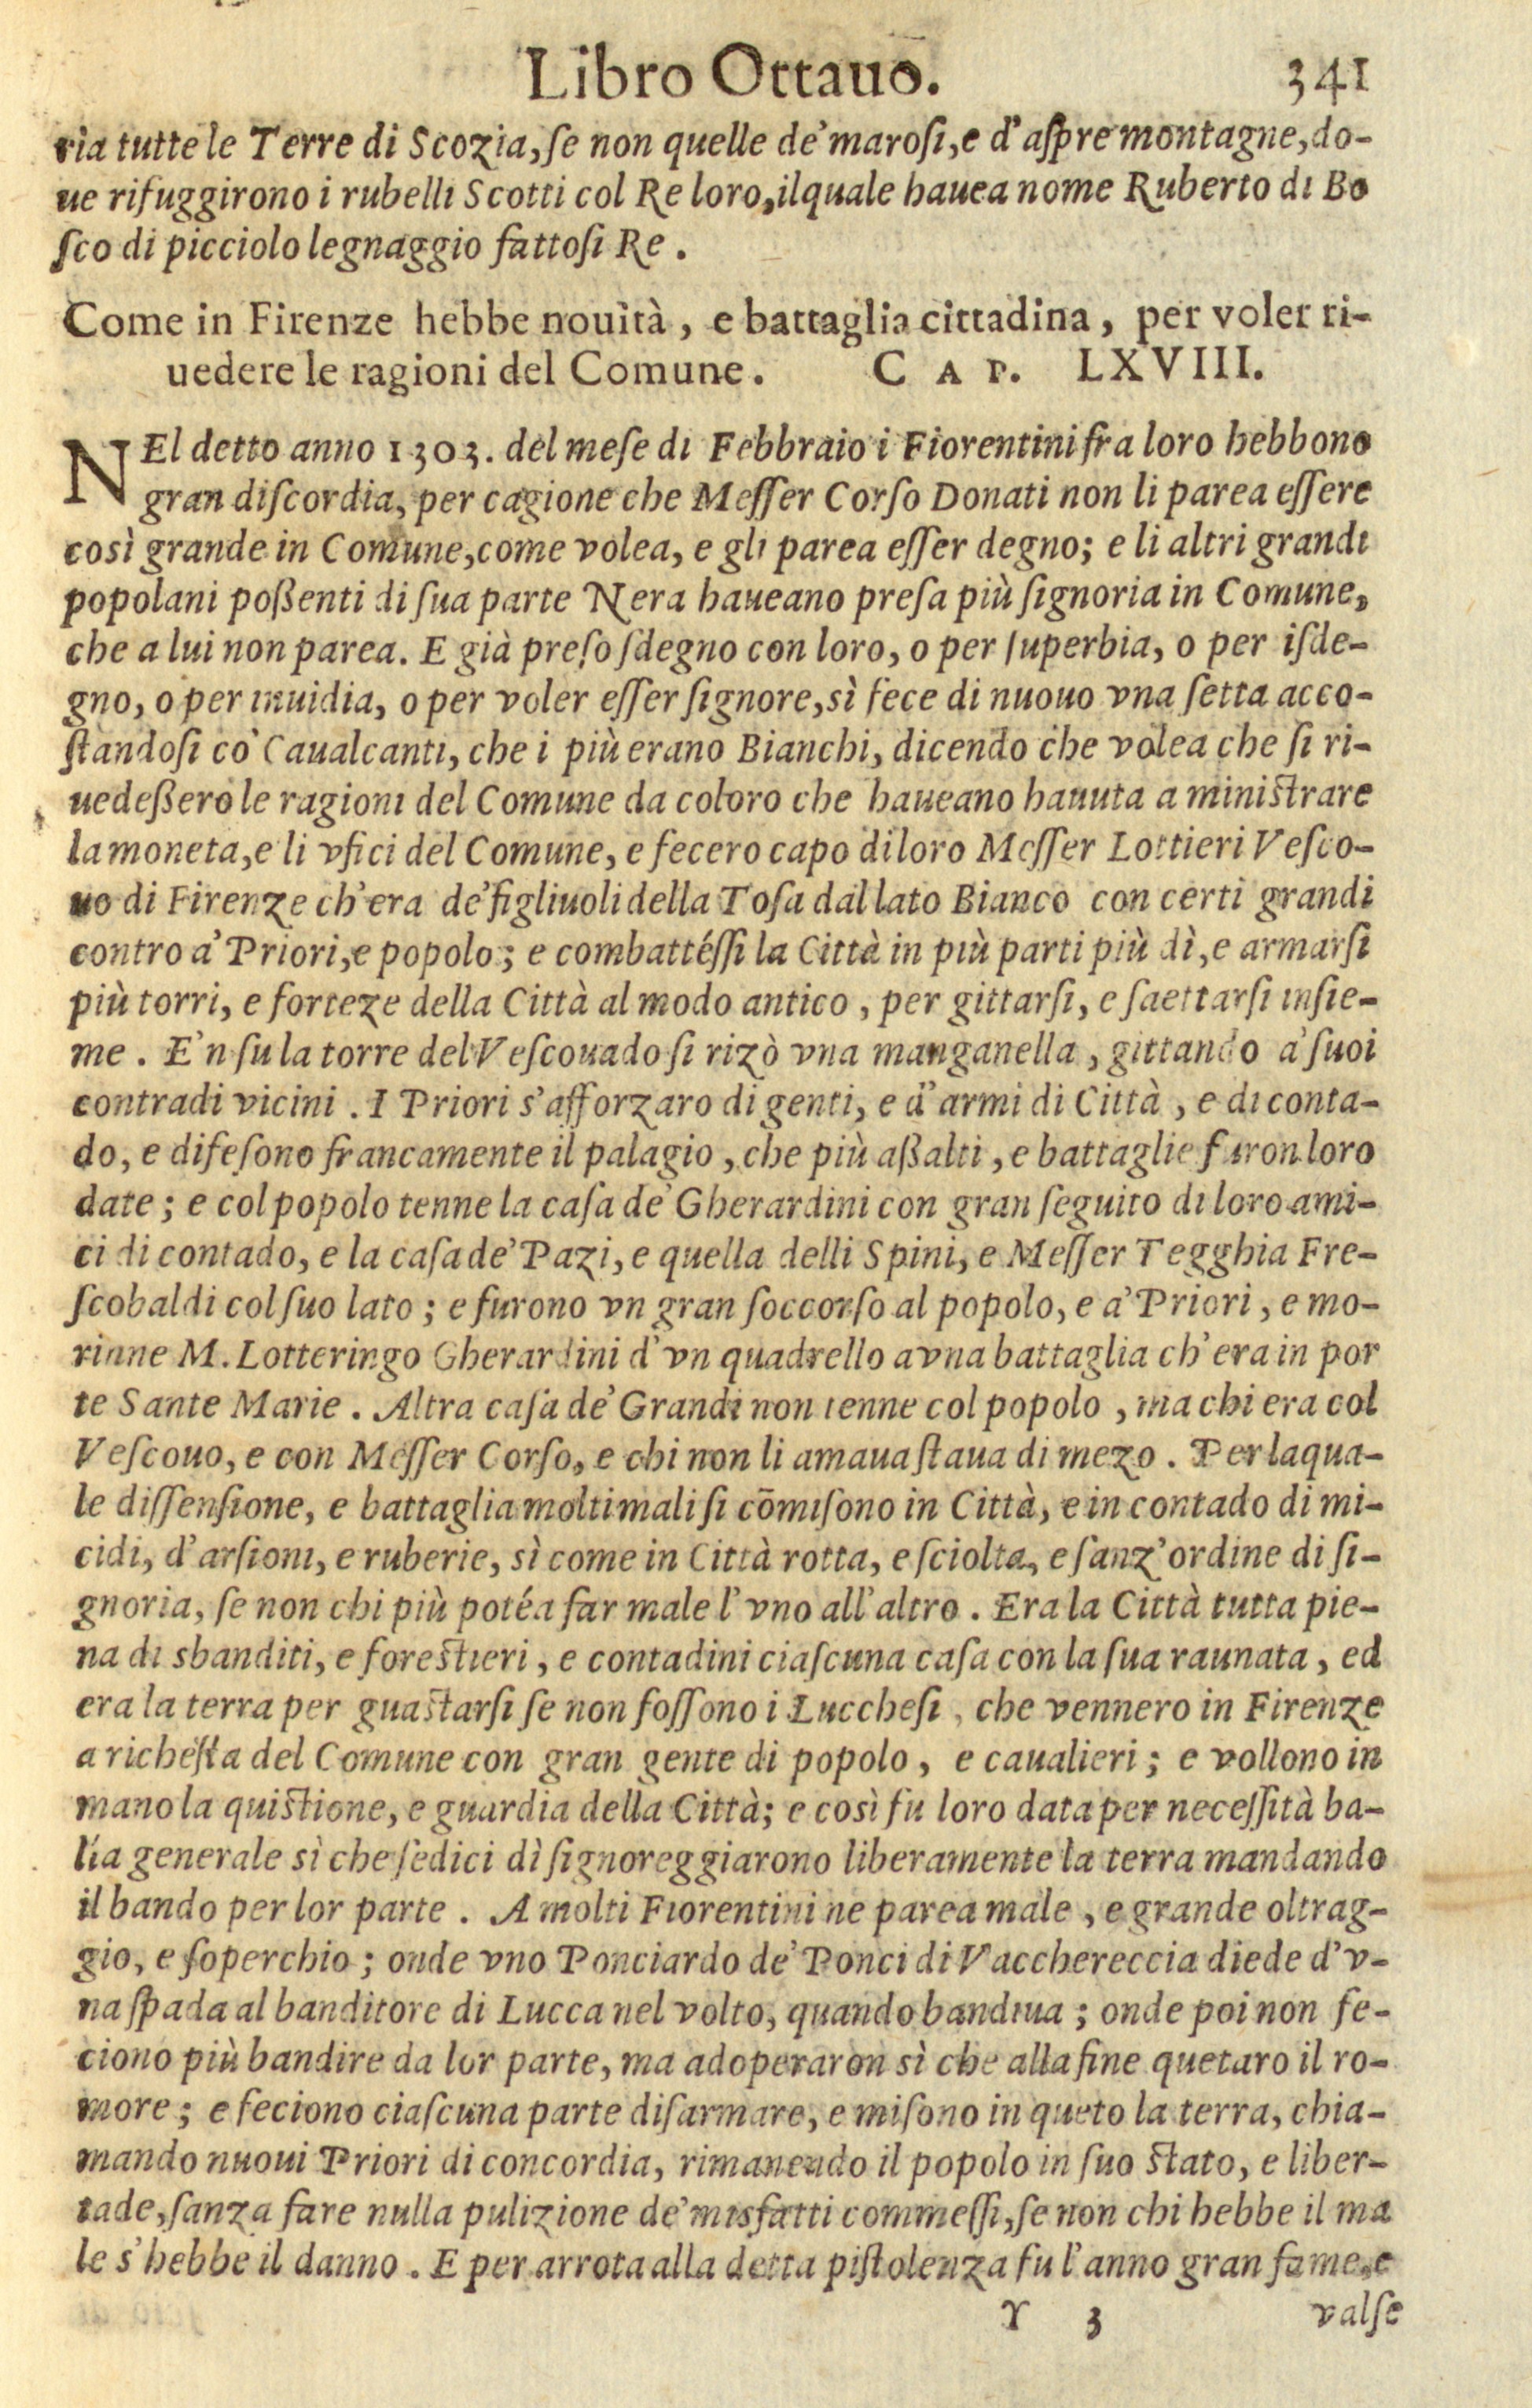 Libro Ottauo. 341
ria tutte le Terre di Scozia, ſe non quelle de' maroſi, e d'aſpre montagne, do-
ue rifuggirono i rubelli Scotti col Re loro, ilquale hauea nome Ruberto di Bo
ſco di picciolo legnaggio fattoſi Re.
Come in Firenze hebbe nouità, e battaglia cittadina, per voler ri-
uedere le ragioni del Comune. CAP. LXVIII.
NEl detto anno 1303. del meſe di Febbraio i Fiorentini fra loro hebbono
gran diſcordia, per cagione che Meſſer Corſo Donati non li parea eſſere
così grande in Comune, come volea, e gli parea eſſer degno; e li altri grandi
popolani poßenti di ſua parte Nera haueano preſa più ſignoria in Comune,
che a lui non parea. E già preſo ſdegno con loro, o per ſuperbia, o per iſde-
gno, o per inuidia, o per voler eſſer ſignore, sì fece di nuouo vna ſetta acco-
ſtandoſi co' Caualcanti, che i più erano Bianchi, dicendo che volea che ſi ri-
uedeßero le ragioni del Comune da coloro che haueano hauuta a miniſtrare
la moneta, e li vfici del Comune, e fecero capo di loro Meſſer Lottieri Veſco-
uo di Firenze ch'era de' figliuoli della Toſa dal lato Bianco con certi grandi
contro a' Priori, e popolo; e combattéſſi la Città in più parti più dì, e armarſi
più torri, e forteze della Città al modo antico, per gittarſi, e ſaettarſi inſie-
me. E'n ſu la torre del Veſcouado ſi rizò vna manganella, gittando a' ſuoi
contradi vicini. I Priori s'afforzaro di genti, e d'armi di Città, e di conta-
do, e difeſono francamente il palagio, che più aßalti, e battaglie furon loro
date; e col popolo tenne la caſa de' Gherardini con gran ſeguito di loro ami-
ci di contado, e la caſa de' Pazi, e quella delli Spini, e Meſſer Tegghia Fre-
ſcobaldi col ſuo lato; e furono vn gran ſoccorſo al popolo, e a' Priori, e mo-
rinne M. Lotteringo Gherardini d'vn quadrello a vna battaglia ch'era in por
te Sante Marie. Altra caſa de' Grandi non tenne col popolo, ma chi era col
Veſcouo, e con Meſſer Corſo, e chi non li amaua ſtaua di mezo. Per laqua-
le diſſenſione, e battaglia molti mali ſi cõmiſono in Città, e in contado di mi-
cidi, d'arſioni, e ruberie, sì come in Città rotta, e ſciolta, e ſanz'ordine di ſi-
gnoria, ſe non chi più potéa far male l'vno all'altro. Era la Città tutta pie-
na di sbanditi, e foreſtieri, e contadini ciaſcuna caſa con la ſua raunata, ed
era la terra per guaſtarſi ſe non foſſono i Lucchesi, che vennero in Firenze
a richeſta del Comune con gran gente di popolo, e caualieri; e vollono in
mano la quiſtione, e guardia della Città; e così fu loro data per neceſſità ba-
lía generale sì che ſedici dì ſignoreggiarono liberamente la terra mandando
il bando per lor parte. A molti Fiorentini ne parea male, e grande oltrag-
gio, e ſoperchio; onde vno Ponciardo de' Ponci di Vacchereccia diede d'v-
na ſpada al banditore di Lucca nel volto, quando bandiua; onde poi non fe-
ciono più bandire da lor parte, ma adoperaron sì che alla fine quetaro il ro-
more; e feciono ciaſcuna parte diſarmare, e miſono in queto la terra, chia-
mando nuoui Priori di concordia, rimanendo il popolo in ſuo ſtato, e liber-
tade, ſanza fare nulla pulizione de' misfatti commeſſi, ſe non chi hebbe il ma
le s'hebbe il danno. E per arrota alla detta piſtolenza fu l'anno gran fame, e
Y 3 valſe